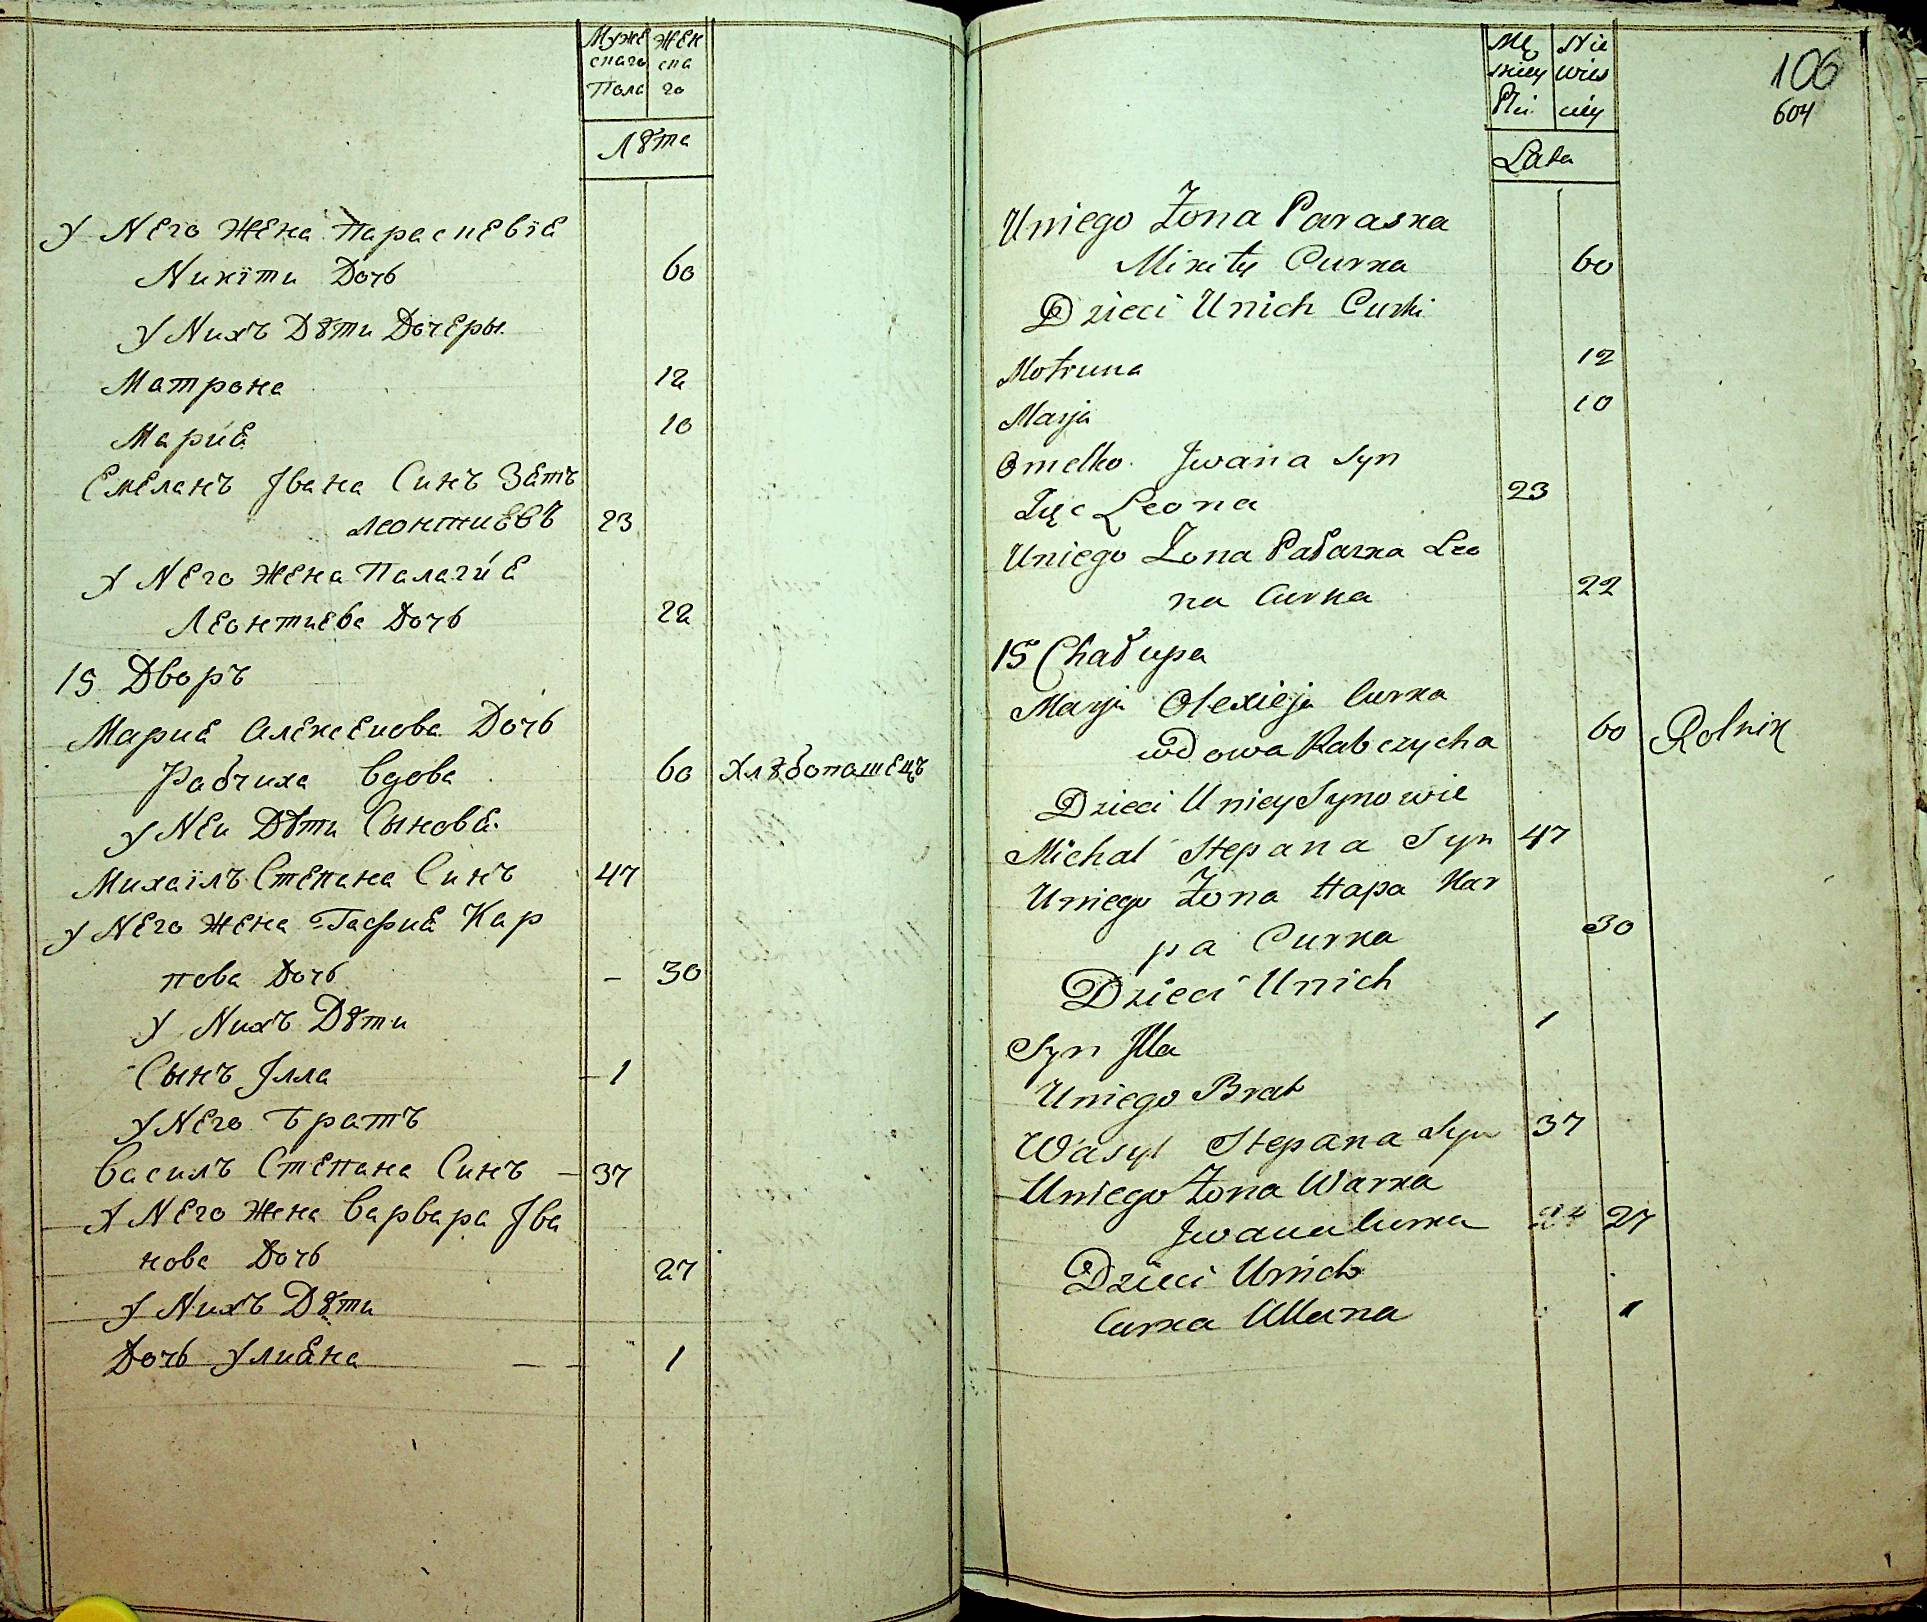 Муже Жен
скаго ска
Пола го
Лѣта
У Него Жена Параскевія
Никіти Дочь 60
У Нихъ Дѣти Дочеры
Матрона 12
Мария 10
Емелянъ Івана Синъ Зять
Леонтиевъ 23
У Него Жена Палагия
Леонтиева Дочь 22
15 Дворъ
Мария Алексеиова Дочь
Рабчиха вдова 60 Хлѣбопашецъ
У Неи Дѣти Сыновя
Михаілъ Степана Синъ 47
У Него Жена Гафия Кар
пова Дочь - 30
У Нихъ Дѣти
Сынъ Ілля - 1
У Него Братъ
Василъ Степана Синъ - 37
У Него Жена Варвара Іва
нова Дочь 27
У Нихъ Дѣти
Дочь Улияна - - 1
Mę Nie
skiey wies
Płci ciey
Lata
106
604
Uniego Żona Paraska
Mikity Curka 60
Dzieci Unich Curki
Motruna 12
Marja 10
Omelko Jwana Syn
Zięc Leona 23
Uniego Żona Pałazka Leo
na Curka 22
15 Chałupa
Marja Olexieja Curka
wdowa Rabczycha 60 Rolnik
Dzieci Uniey Synowie
Michał Stepana Syn 47
Uniego Żona Hapa Kar
pa Curka 30
Dzieci Unich
Syn Jlla 1
Uniego Brat
Wasyl Stepana Syn 37
Uniego Żona Warka
Jwana Curka 27
Dzieci Unich
Curka Ullana 1